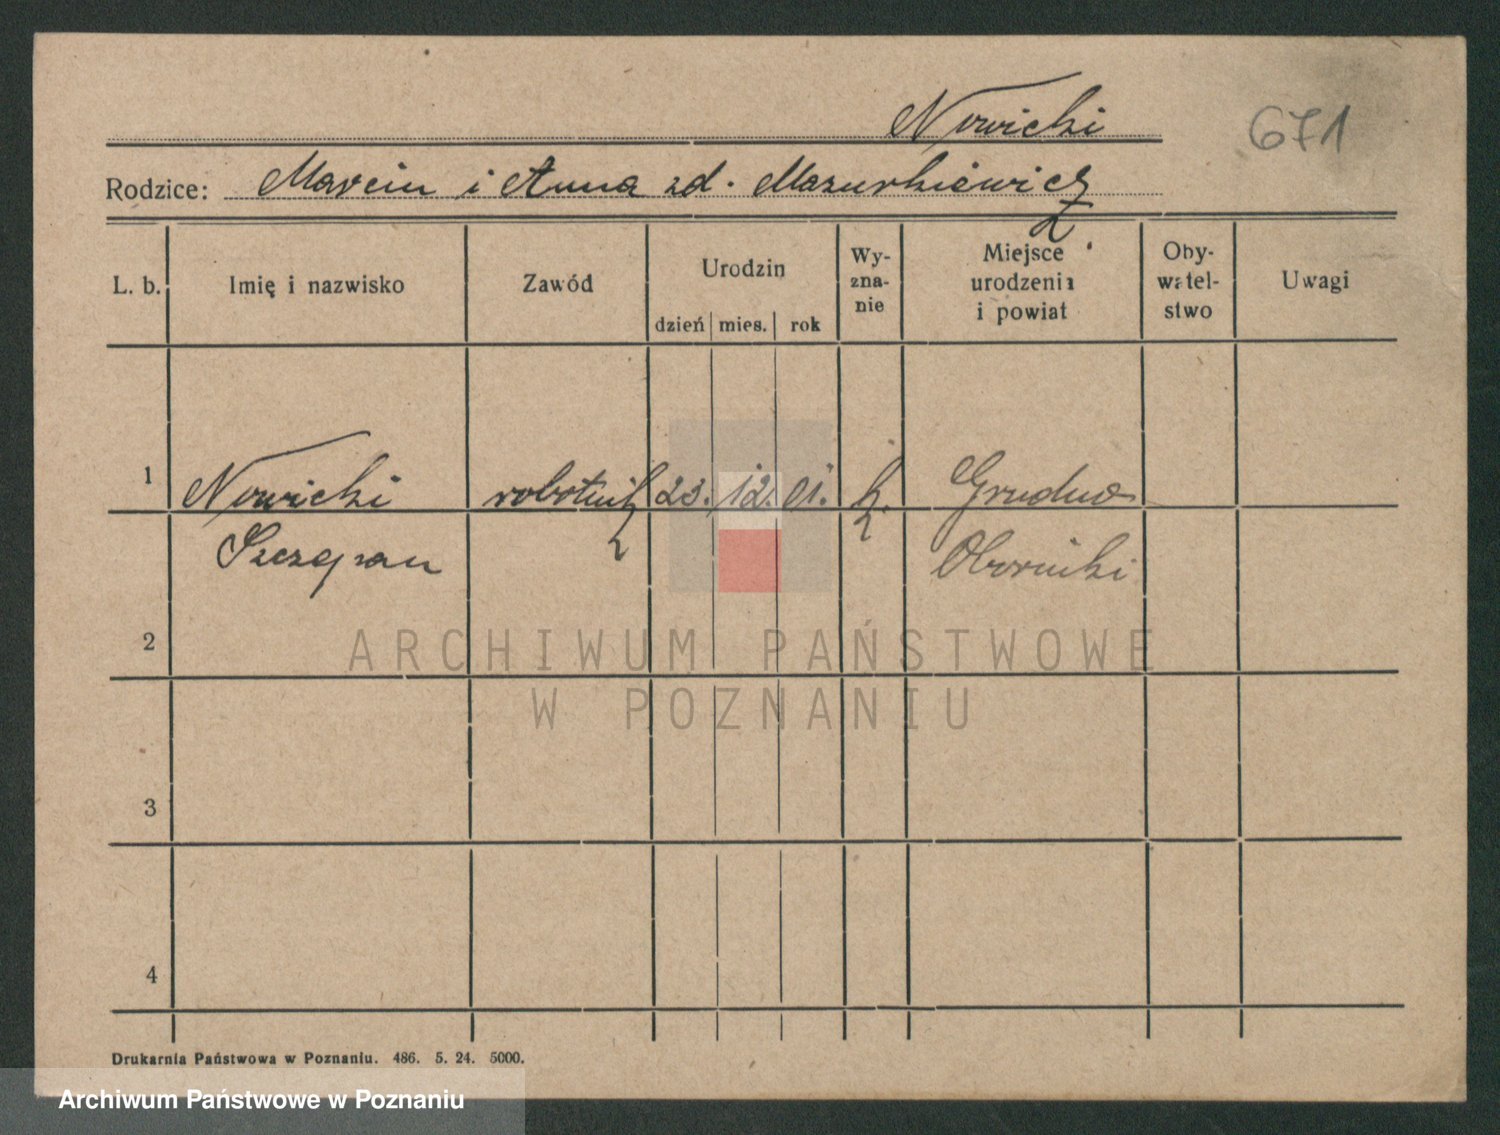 Nowicki
671
Rodzice: Marcin i Anna zd. Mazurkiewicz
L. b. Imię i nazwisko Zawód Urodzin Wy-zna-nie Miejsce urodzenia i powiat Oby-watel-stwo Uwagi
dzień mies. rok
1 Nowicki robotnik 23. 12. 01. k. Grudna
Szczepan Oborniki
2
ARCHIWUM PAŃSTWOWE
W POZNANIU
3
4
Drukarnia Państwowa w Poznaniu. 486. 5. 24. 5000.
Archiwum Państwowe w Poznaniu